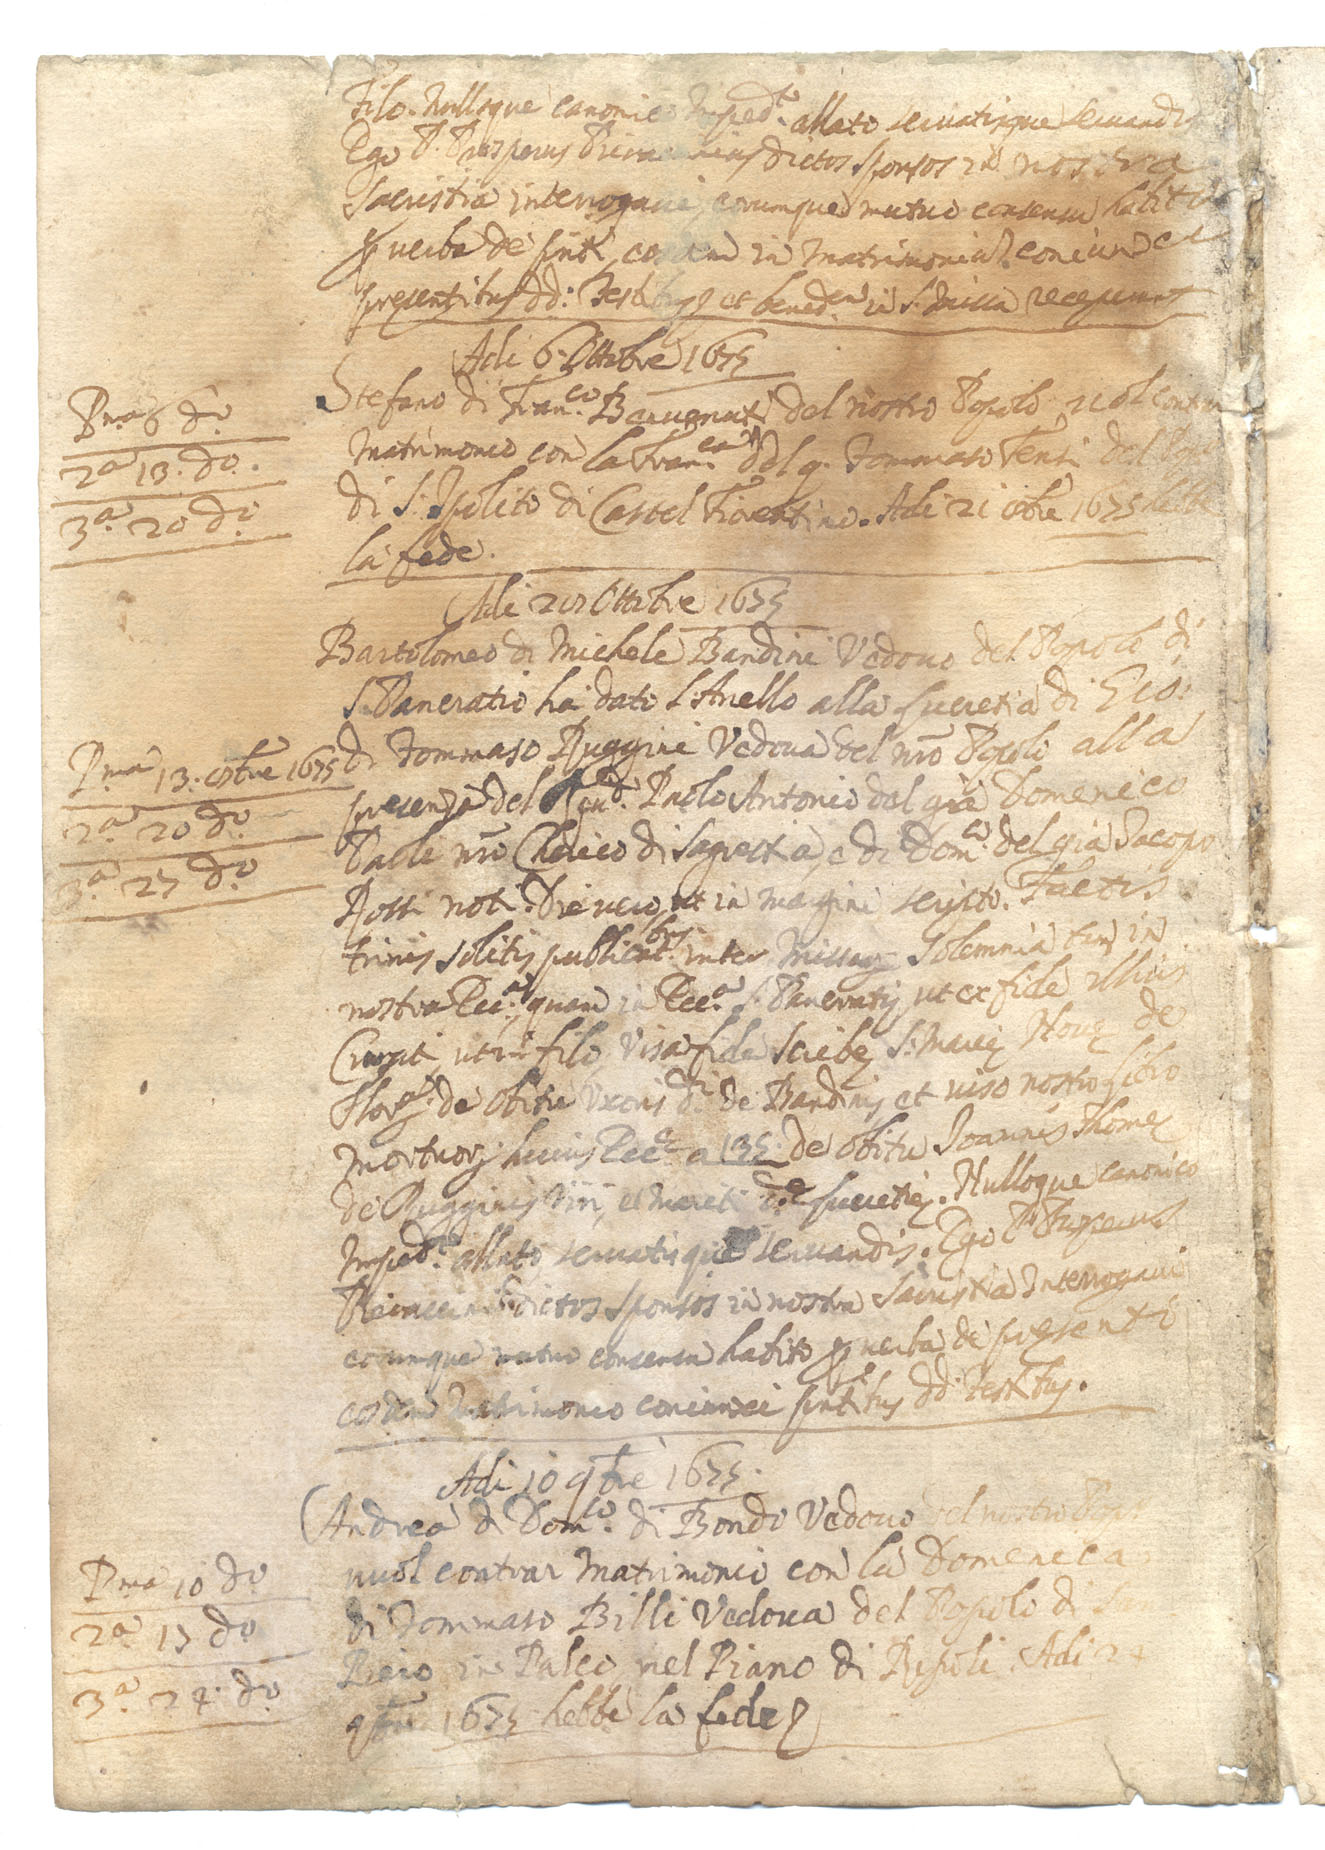 filo. Nulloque canonico Imped.to allato servatisque servandis
Ego P. Prosperus dictos sponsos in nostra
Sacristia interrogavi, eorumque mutuo consensu habito
p verba de pnti, eosdem in Matrimonium coniunxi
presentibus dd: Testibus et bened.em in S. Missa receperunt
Adi 6 Ottobre 1675
Stefano di Fran.co del nostro Popolo vuol contrar
Matrimonio con la Fran.ca del q. Tommaso Tenti del Pop.o
di S. Ipolito di Castel Fiorentino. Adi 21 8bre 1675 hebbe
la fede.
P.ma 6 d.o
2.a 13. d.o
3.a 20 d.o
Adi 20 Ottobre 1675
Bartolomeo di Michele Bandini Vedovo del Popolo di
S. Pancratio ha dato l'Anello alla Lucretia di Gio:
di Tommaso Ruggini Vedova del nro Popolo alla
presenza del Paolo Antonio del già Domenico
Paoli nro Cherico di Sagrestia, e di Dom.co del già Jacopo
Rossi noti. Die vero, ut in margine scripto. Factis
trinis solitis publicat.bus inter Missar. solemnia tam in
nostra Ecc.a, quam in Ecc.a S. Pancratij, ut ex fide illius
Curati, ut in filo, visa fide Scribe S. Marie Nove de
Flor.a de obitu Uxoris d.i de Bandinis, et viso nostro libro
mortuor. huius Ecc.e a 135. de obitu Joannis Thome
de Rugginis Viri, et Mariti d.e Lucretie. Nulloque canonico
Imped.to allato, servatisque servandis. Ego P. Prosperus
dictos sponsos in nostra Sacristia Interrogavi
eorumque mutuo consensu habito p verba de presenti
eosdem Matrimonio coniunxi pntibus dd. Testibus.
P.ma 13. 8bre 1675
2.a 20 d.o
3.a 27 d.o
Adi 10 9bre 1675.
Andrea di Dom.co di Bondo Vedovo del nostro Pop.
vuol contrar Matrimonio con la Domenica
di Tommaso Billi Vedova del Popolo di San
Piero in Palco nel Piano di Ripoli. Adi 24
9bre 1675 hebbe la fede
P.ma 10 d.o
2.a 17 d.o
3.a 24. d.o